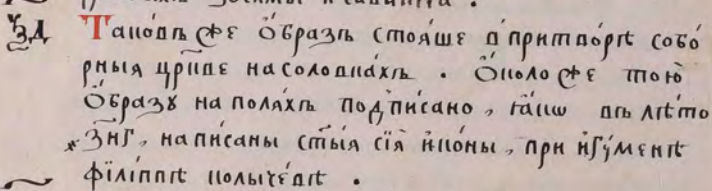 Таковъ же ѻ҆́бразъ стоѧ́ше в̾притво́рѣ собо́
рныѧ цр҃кве на соловка́хъ . Ѻ҆́коло же тою̀
ѻ҆́бразꙋ на полѧ́хъ под̾пи́сано , ꙗ҆́кѡ въ лѣ́то
҂знг҃ , напи́саны ст҃ы́ѧ сїѧ̀ и҆ко́ны , при и҆гꙋ́менѣ
фїли́ппѣ колыче́вѣ .